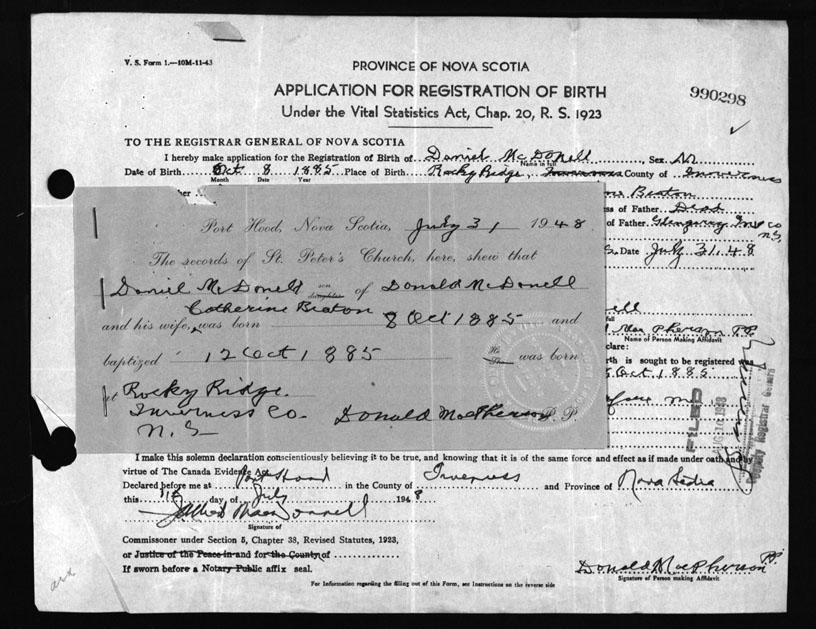 V. S. Form 1.—10M-11-43
PROVINCE OF NOVA SCOTIA
APPLICATION FOR REGISTRATION OF BIRTH
Under the Vital Statistics Act, Chap. 20, R. S. 1923
990298
TO THE REGISTRAR GENERAL OF NOVA SCOTIA
I hereby make application for the Registration of Birth of Daniel McDonell, Sex M
Name in full
Date of Birth Oct 8 1885 Place of Birth Rocky Ridge, Inverness County of Inverness
Month Day Year
ther Beaton
ss of Father Dead
of Father Glengarry Inv Co N.S.
Date July 31. 48
Port Hood, Nova Scotia, July 31 1948
The records of St. Peter's Church, here, shew that
Daniel McDonell son daughter of Donald McDonell
Catherine Beaton
and his wife, was born 8 Oct 1885 and
baptized 12 Oct 1885 He She was born
at Rocky Ridge.
Inverness Co. Donald MacPherson P. P.
N. S
ell
full
Mac Pherson P.P.
Name of Person Making Affidavit
clare:
rth is sought to be registered was
Oct. 1885
fore me
FILED
AUG 10 1948
Deputy Registrar General
I make this solemn declaration conscientiously believing it to be true, and knowing that it is of the same force and effect as if made under oath and by
virtue of The Canada Evidence Act.
Declared before me at Port Hood in the County of Inverness and Province of Nova Scotia
this 31st day of July 1948
MacDonnell
Signature of
Commissioner under Section 5, Chapter 38, Revised Statutes, 1923,
or Justice of the Peace in and for the County of
If sworn before a Notary Public affix seal.
Donald MacPherson P.P.
Signature of Person making Affidavit
For Information regarding the filling out of this Form, see Instructions on the reverse side